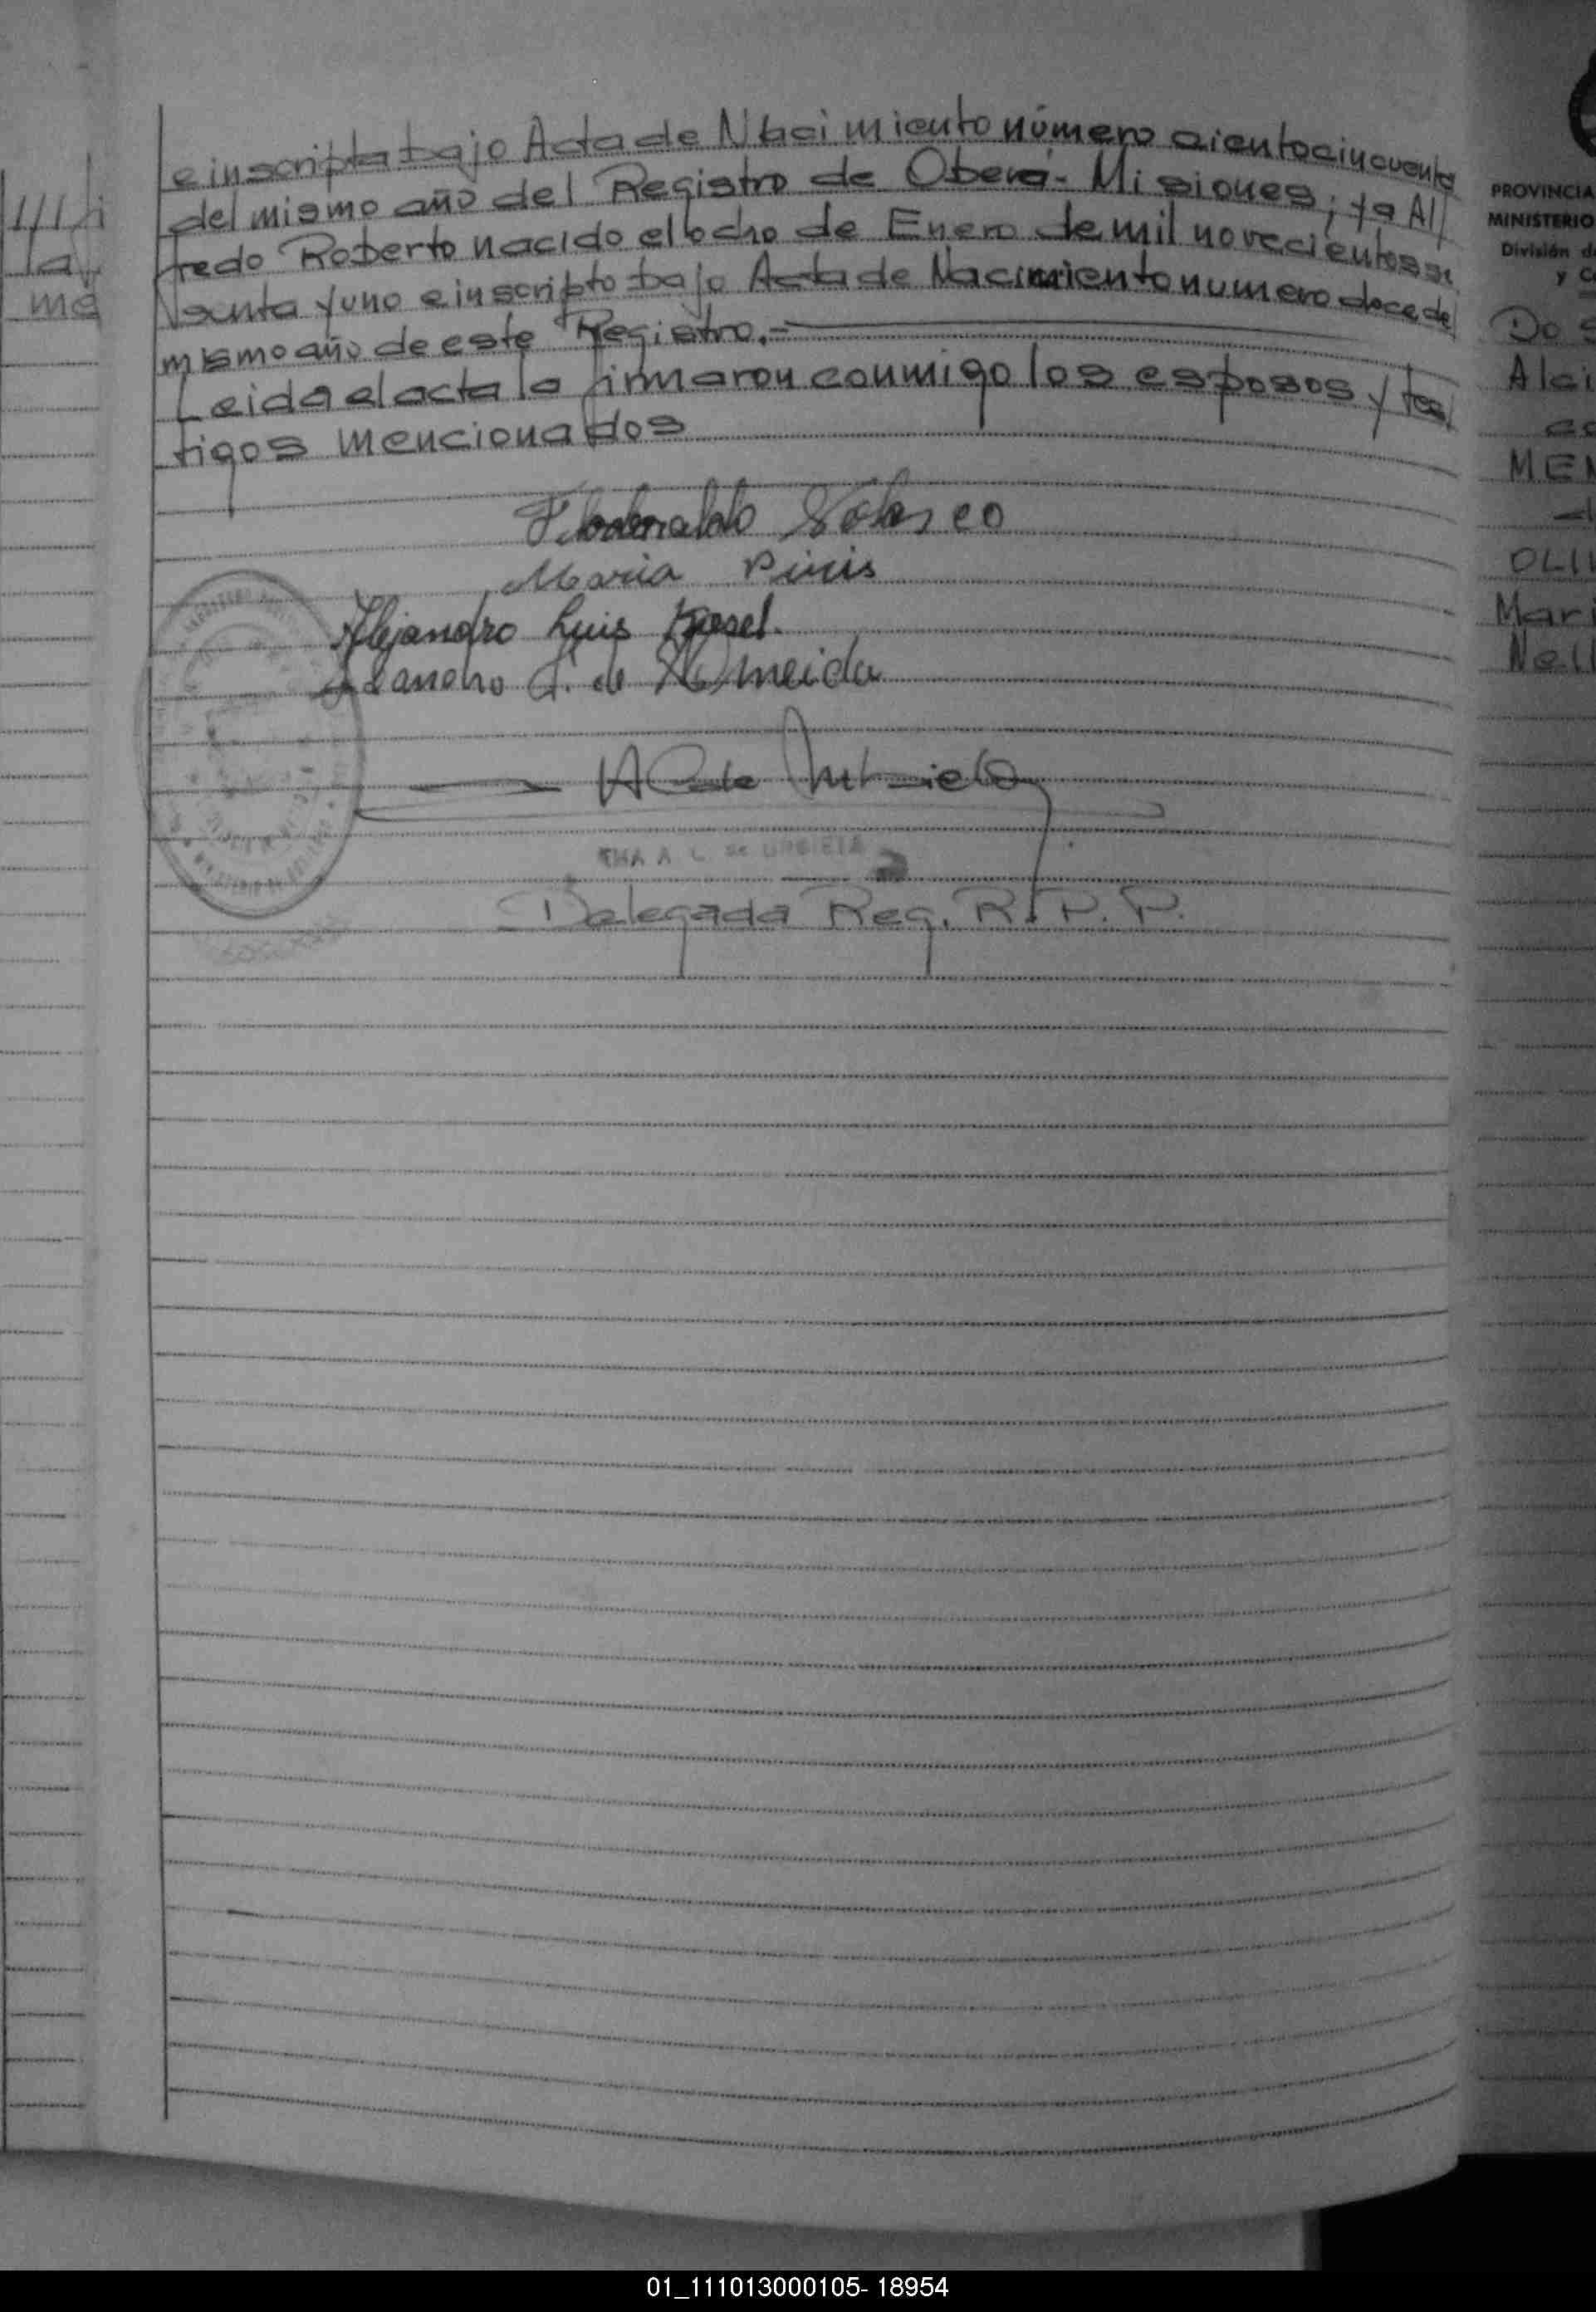 e inscripta bajo Acta de Nacimiento número ciento cincuenta
del mismo año del Registro de Oberá- Misiones; y a Al//
fredo Roberto nacido el ocho de Enero de mil novecientos se
senta y uno e inscripto bajo Acta de Nacimiento numero doce del
mismo año de este Registro.-
Leida el acta la firmaron conmigo los esposos y tes/
tigos mencionados
Maria
Alejandro Luis
de Almeida
Delegada Reg. R. P. P.
PROVINCIA
MINISTERIO
División d
y C
Do
Alci
MEN
OLI
Mari
Nell
01_111013000105- 18954